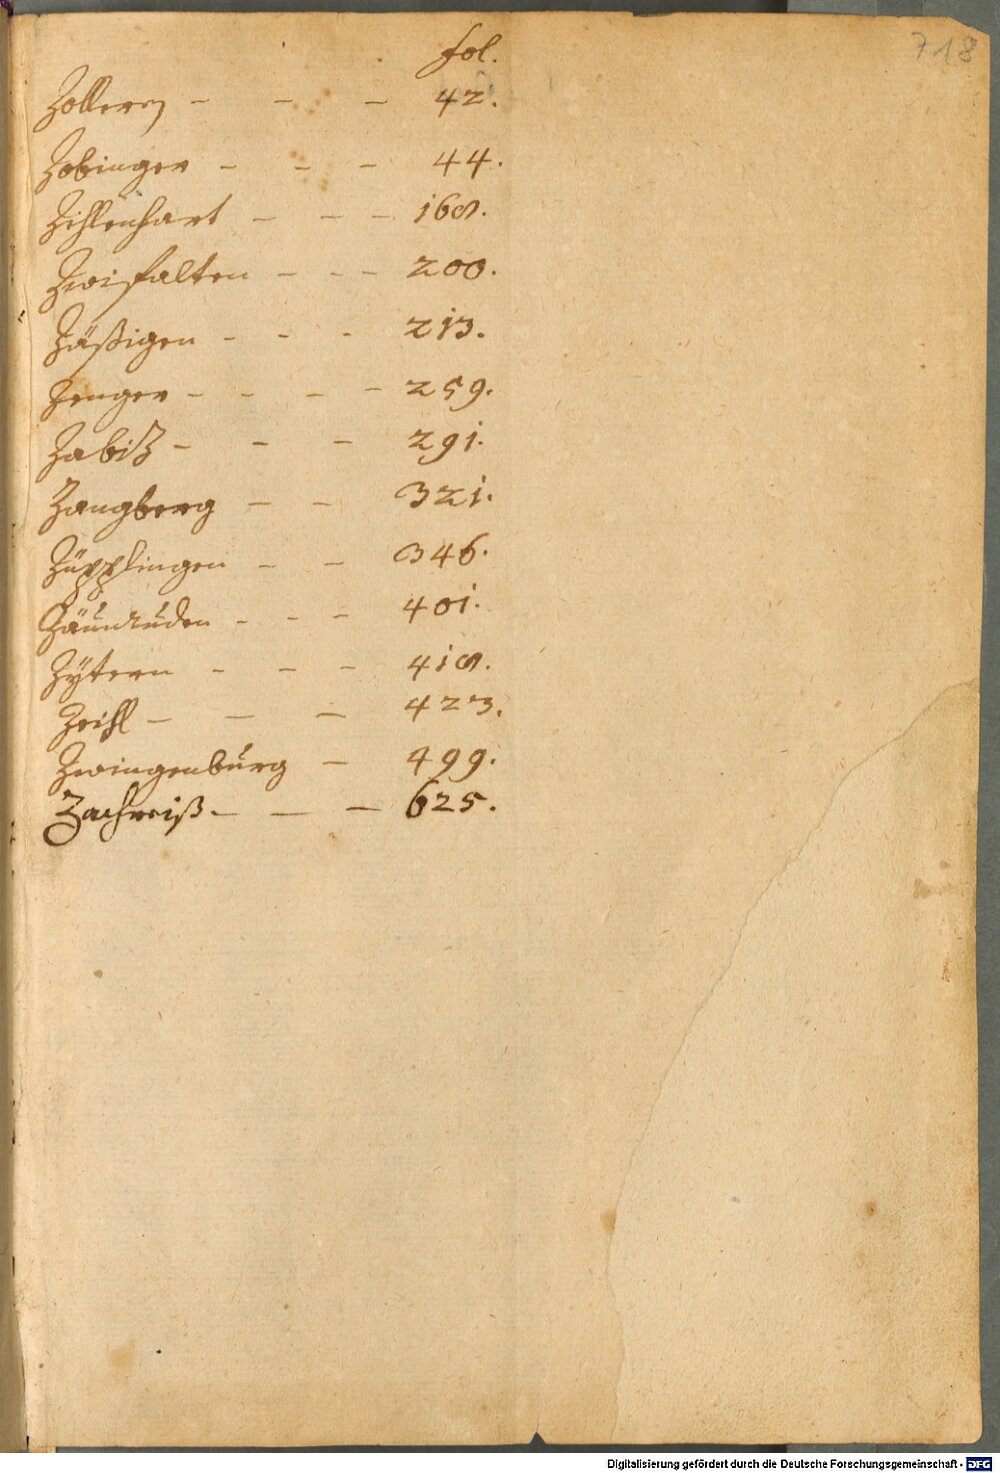 718
fol.
Zollern - - - 42.
Zobinger - - - 44.
Zihlenhart - - - 168.
Zwifalten - - - 200.
Zäßigen - - - 213.
Zenger - - - - 259.
Zabiz - - - 291.
Zangberg - - 321.
Züpplingen - - 346.
Zäunruden - - - 401.
Zÿtern - - - 418.
Zeihl - - - 423.
Zwingenburg - 499.
Zachreiß - - - 625.
Digitalisierung gefördert durch die Deutsche Forschungsgemeinschaft - DFG